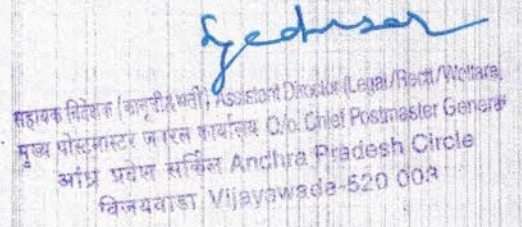 सहायक निदेशक (कानूनी&भर्ती), Assistant Director (Legal/Rectt/Welfare,
मुख्य पोस्टमास्टर जनरल कार्यालय O/o. Chief Postmaster General
आंध्र प्रदेश सर्किल Andhra Pradesh Circle
विजयवाडा Vijayawada-520 003